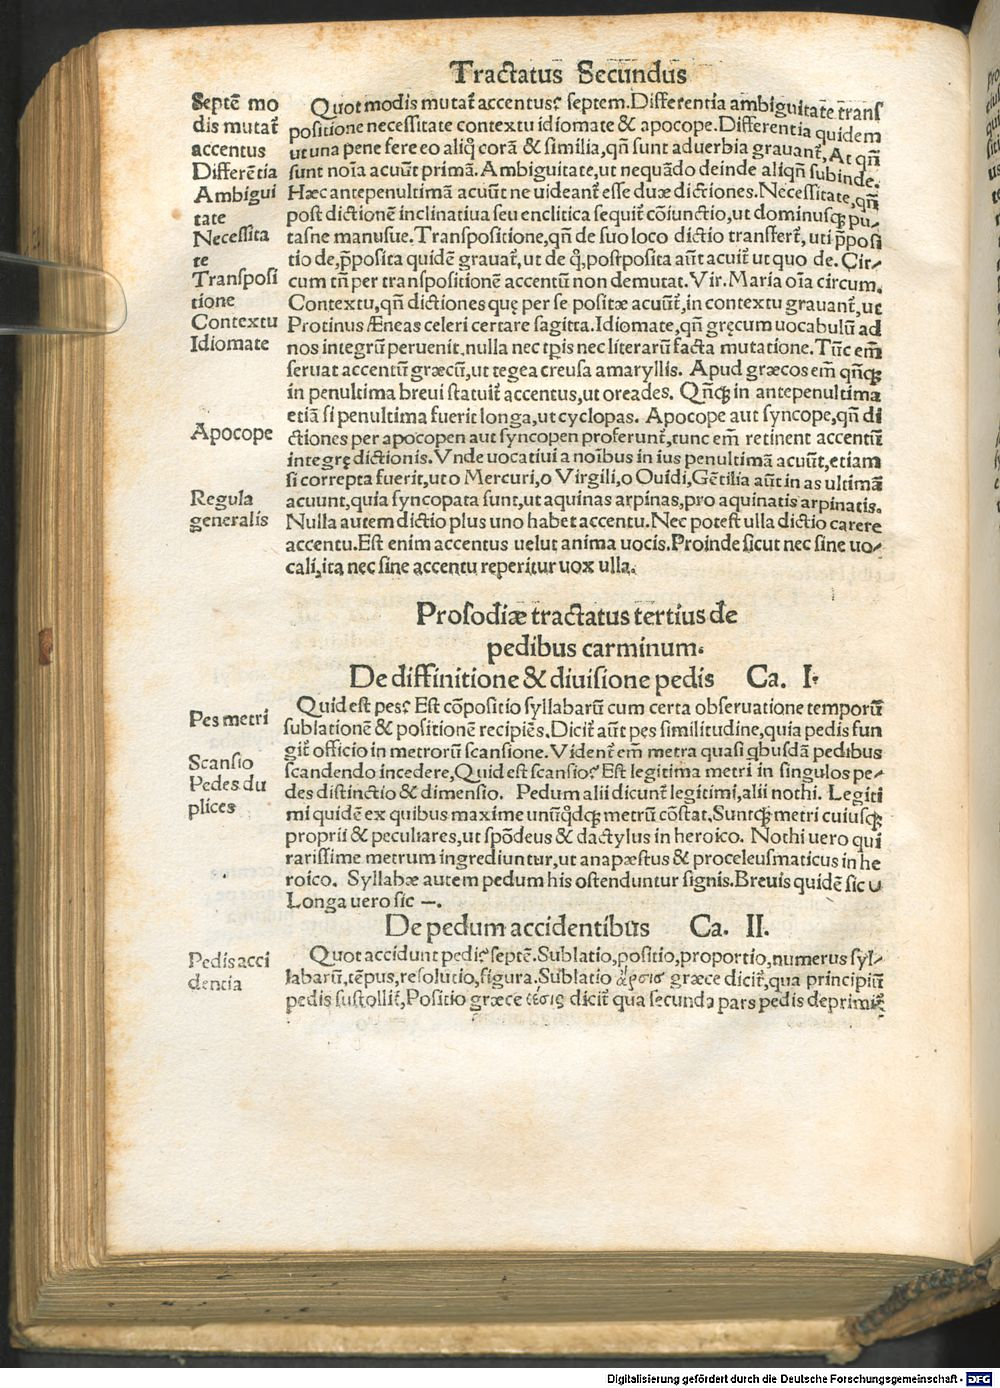 Tractatus Secundus
Septē mo
dis mutat᷑
accentus
Differētia
Ambigui
tate
Necessita
te
Transposi
tione
Contextu
Idiomate
Apocope
Regula
generalis
Quot modis mutat᷑ accentus? septem. Differentia ambiguitate trans
positione necessitate contextu idiomate & apocope. Differentia quidem
ut una pene fere eo aliq̄ corā & similia, qñ sunt aduerbia grauant᷑, At qñ
sunt noīa acuūt primā. Ambiguitate, ut nequādo deinde aliqñ subinde.
Hæc antepenultimā acuūt ne uideant᷑ esse duæ dictiones. Necessitate, qñ
post dictionē inclinatiua seu enclitica sequit᷑ cōiunctio, ut dominusq; pu-
tasne manusue. Transpositione, qñ de suo loco dictio transfert᷑, uti p̄posi
tio de, p̄posita quidē grauat᷑, ut de q̊, postposita aūt acuit᷑ ut quo de. Cir-
cum tñ per transpositionē accentū non demutat. Vir. Maria oīa circum.
Contextu, qñ dictiones quę per se positæ acuūt᷑, in contextu grauant᷑, ut
Protinus Æneas celeri certare sagitta. Idiomate, qñ gręcum uocabulū ad
nos integrū peruenit, nulla nec tp̄is nec literarū facta mutatione. Tūc em̄
seruat accentū græcū, ut tegea creusa amaryllis. Apud græcos em̄ qñq;
in penultima breui statuit᷑ accentus, ut oreades. Qñq; in antepenultima
etiā si penultima fuerit longa, ut cyclopas. Apocope aut syncope, qñ di
ctiones per apocopen aut syncopen proferunt᷑, tunc em̄ retinent accentū
integrę dictionis. Vnde uocatiui a noībus in ius penultimā acuūt, etiam
si correpta fuerit, ut o Mercuri, o Virgili, o Ouidi, Gētilia aūt in as ultimā
acuunt, quia syncopata sunt, ut aquinas arpinas, pro aquinatis arpinatis.
Nulla autem dictio plus uno habet accentu. Nec potest ulla dictio carere
accentu. Est enim accentus uelut anima uocis. Proinde sicut nec sine uo-
cali, ita nec sine accentu reperitur uox ulla.
Prosodiæ tractatus tertius de
pedibus carminum.
De diffinitione & diuisione pedis Ca. I.
Pes metri
Scansio
Pedes du
plices
Quid est pes? Est cōpositio syllabarū cum certa obseruatione temporū
sublationē & positionē recipiēs. Dicit᷑ aūt pes similitudine, quia pedis fun
git᷑ officio in metrorū scansione. Vident᷑ em̄ metra quasi q̇busdā pedibus
scandendo incedere, Quid est scansio? Est legitima metri in singulos pe-
des distinctio & dimensio. Pedum alii dicunt᷑ legitimi, alii nothi. Legiti
mi quidē ex quibus maxime unūq̇dq; metrū cōstat. Suntq; metri cuiusq;
proprii & peculiares, ut spōdeus & dactylus in heroico. Nothi uero qui
rarissime metrum ingrediuntur, ut anapæstus & proceleusmaticus in he
roico. Syllabæ autem pedum his ostenduntur signis. Breuis quidē sic ∪
Longa uero sic —.
De pedum accidentibus Ca. II.
Pedis acci
dentia
Quot accidunt pedi? septē. Sublatio, positio, proportio, numerus syl-
labarū, tēpus, resolutio, figura. Sublatio ἄρσις græce dicit᷑, qua principiū
pedis sustollit᷑, Positio græce θέσις dicit᷑ qua secunda pars pedis deprimit᷑
Digitalisierung gefördert durch die Deutsche Forschungsgemeinschaft - DFG